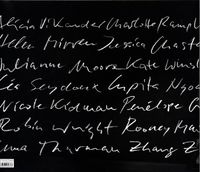 Alicia Vikander Charlotte Rampl
Helen Mirren Jessica Chasta
Julianne Moore Kate Winsl
Léa Seydoux Lupita Nyo
Nicole Kidman Penélope C
Robin Wright Rooney Ma
Uma Thurman Zhang Z